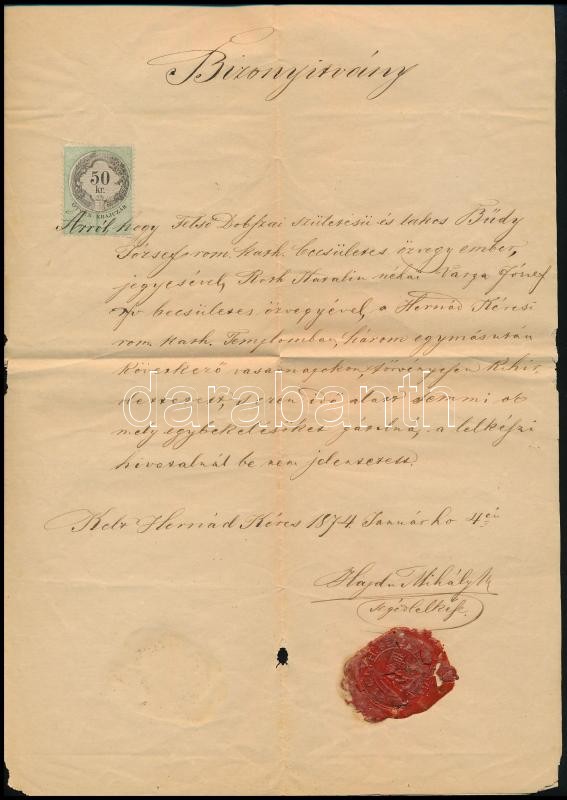 Bizonyitvány
50
kr.
KRAJCZÁR
Arról, hogy Felső Dobszai születésü és lakos Büdy
József rom. kath. becsületes özvegy ember,
jegyesével, Roth Katalin néhai Varga József
becsületes özvegyével, a Hernád Kércsi
rom. kath. Templomban, három egymásután
következő vasárnapokon, törvényesen kihir,
dettetett, s ezen idő alatt semmi oly
mely egybekelésöket gátolná, a lelkészi
hivatalnál be nem jelentetett.
darabanth
Kelt Hernád Kércs 1874 Januárhó 4én
Hajdu Mihály
segédlelkész